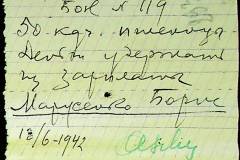 Бон № 119
50 кгр. пшеницы
Деньги удержать
из зарплаты
Марусенко Борис
18/6-1942